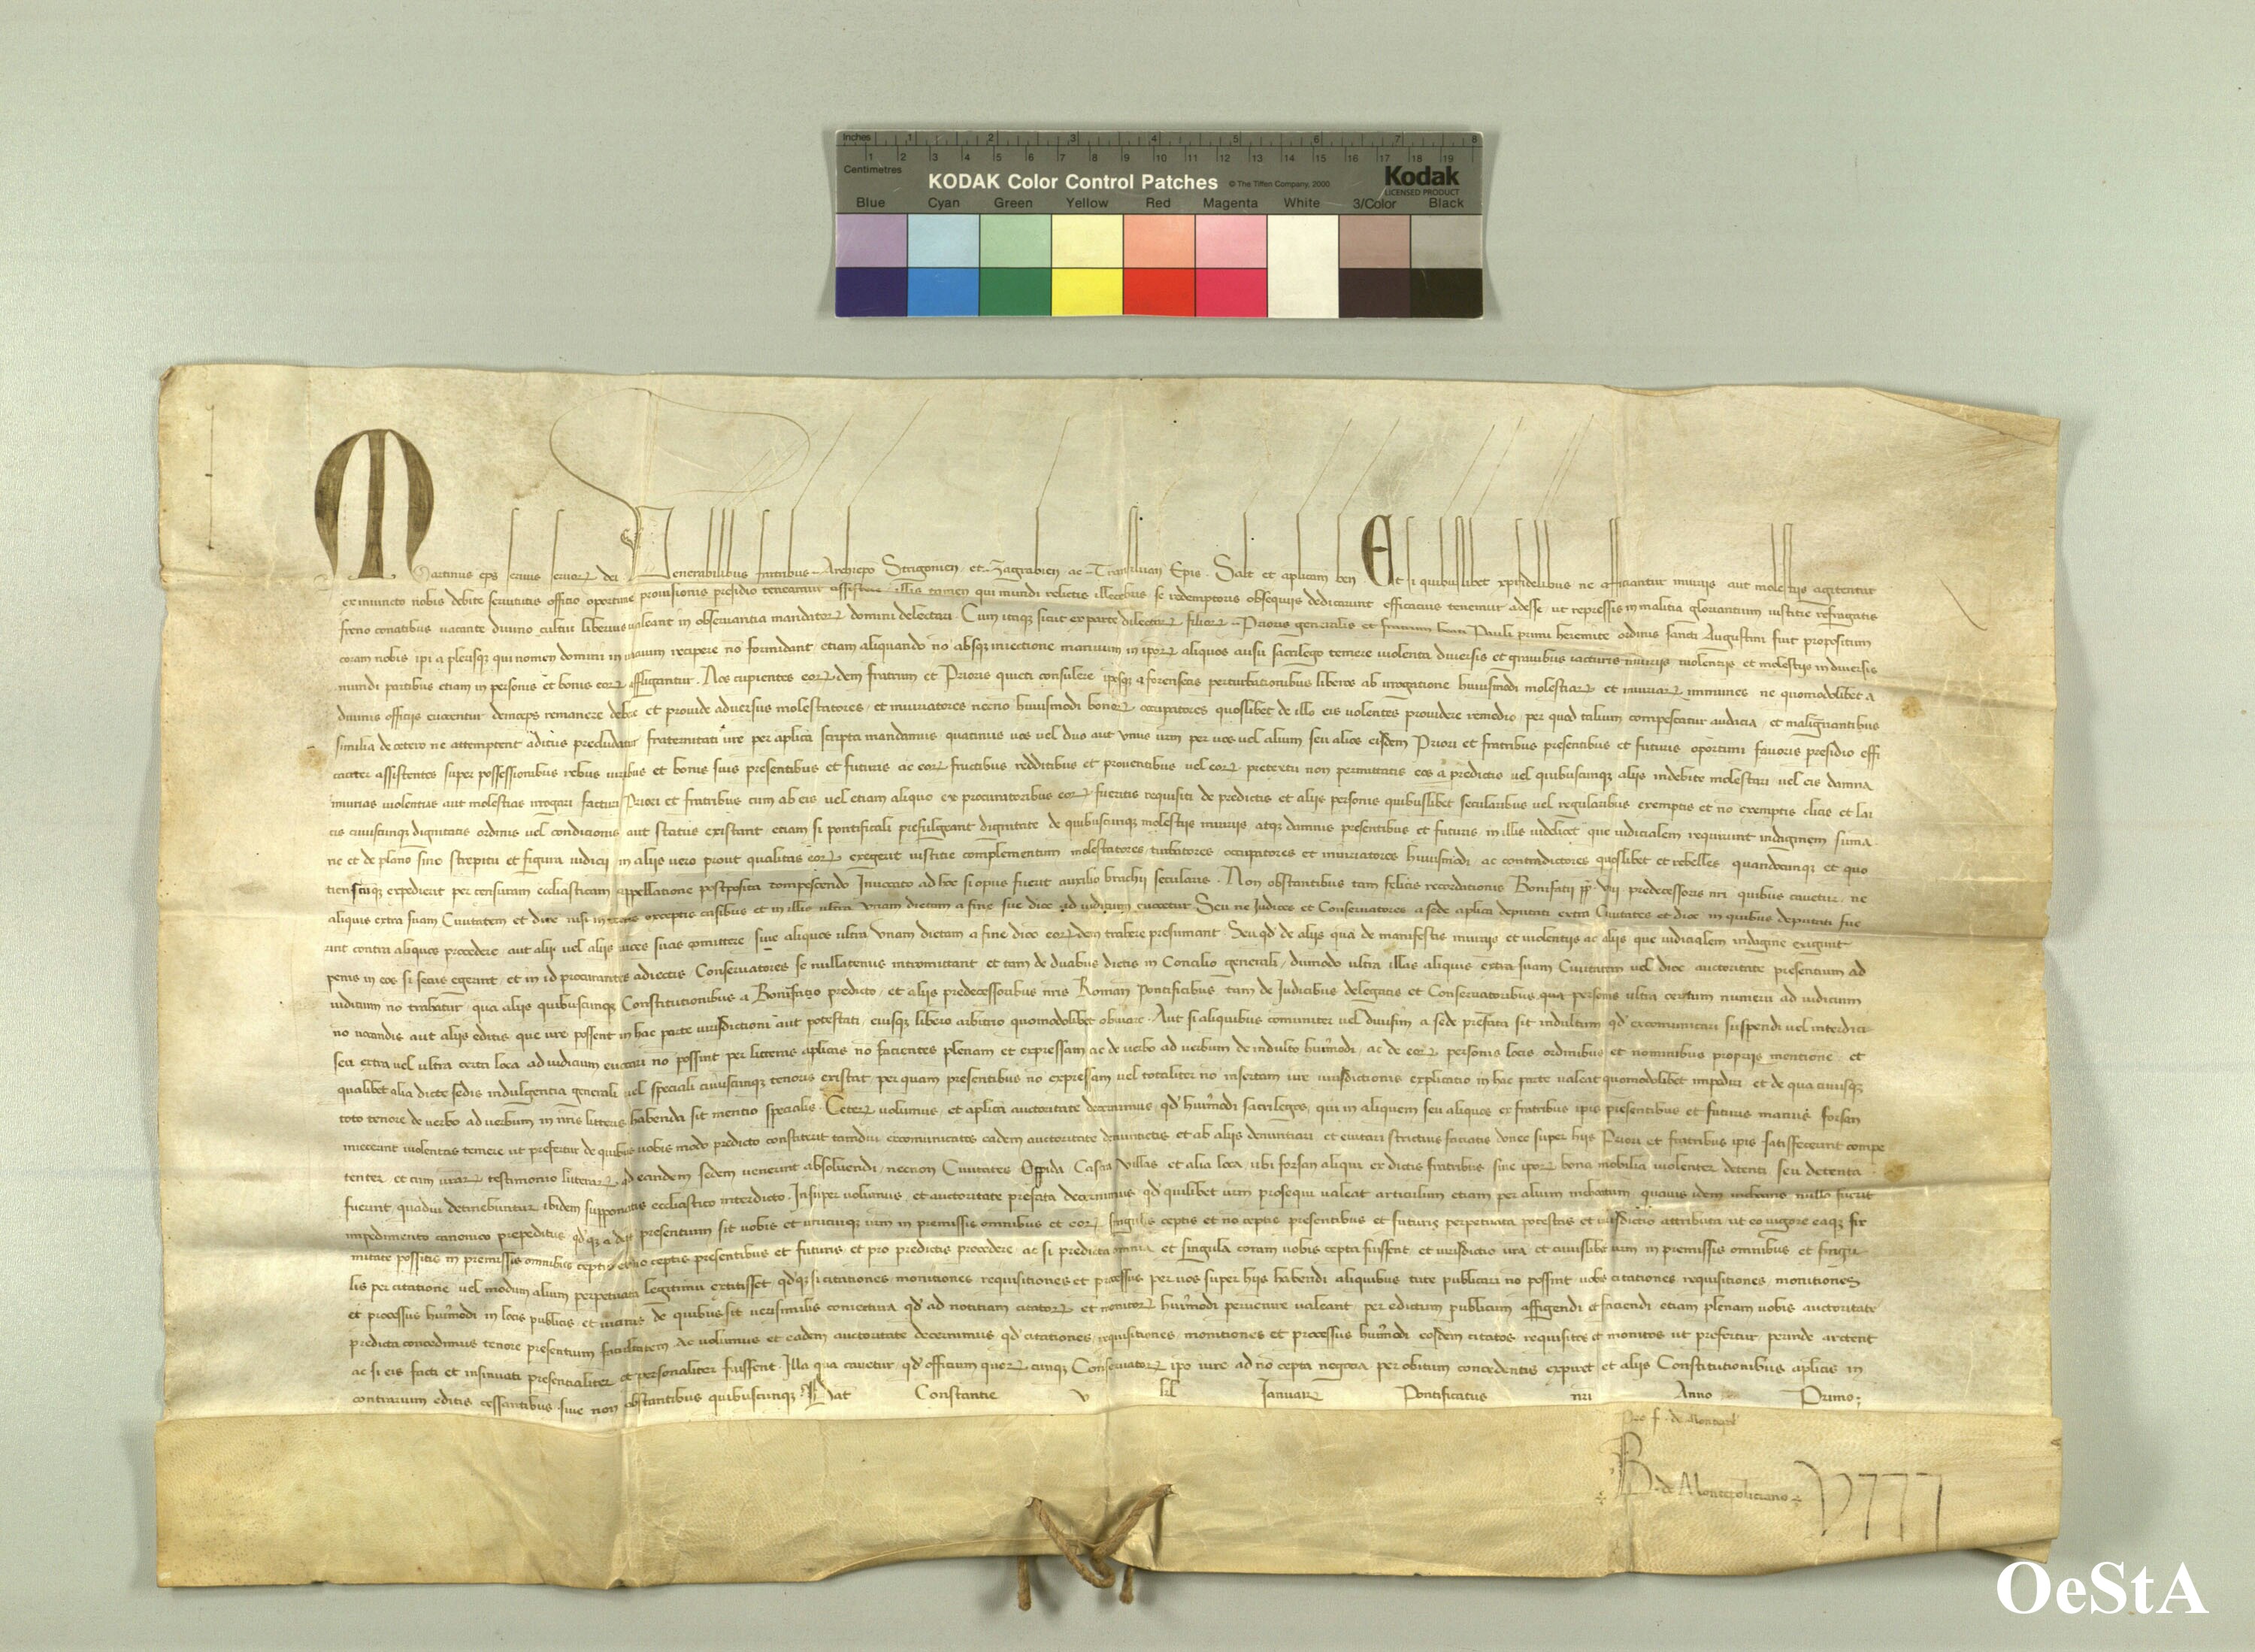 Inches 1 2 3 4 5 6 7 8
Centimetres 1 2 3 4 5 6 7 8 9 10 11 12 13 14 15 16 17 18 19
KODAK Color Control Patches © The Tiffen Company, 2000 Kodak
LICENSED PRODUCT
Blue Cyan Green Yellow Red Magenta White 3/Color Black
Martinus eps servus servorꝝ dei Venerabilibus fratribus Archiepo Strigonien et Zagrabien ac Transiluan Epis Salt et aplicam ben Et si quibuslibet xpifidelibus ne afficiantur iniuriis aut molestijs agitentur
ex iniuncto nobis debite servitutis officio oportune provisionis presidio teneamur assistere illis tamen qui mundi relictis illecebris se redemptoris obsequijs dedicarunt efficacius tenemur adesse ut repressis in malitia gloriantium iustitie refragatis
freno conatibus vacante divino cultui liberius valeant in observantia mandatorꝝ domini delectari Cum itaqꝫ sicut ex parte dilectorꝝ filiorꝝ Prioris generalis et fratrum beati Pauli primi heremite ordinis sancti Augustini fuit propositum
coram nobis ipi a plerisqꝫ qui nomen domini in vacuum recipere no formidant etiam aliquando no absqꝫ iniectione manuum in iporꝝ aliquos ausu sacrilego temere violenta diversis et gravibus iacturis iniurijs violentijs et molestijs in diversis
mundi partibus etiam in personis et bonis eorꝝ affligantur Nos cupientes eorꝝdem fratrum et Prioris quieti consulere ipsosqꝫ a forensibus perturbationibus liberos ab irrogatione huiusmodi molestiarꝝ et iniuriarꝝ immunes ne quomodolibet a
divinis officijs evocentur deinceps remanere debere et provide adversus molestatores et iniuriatores necno huiusmodi bonorꝝ occupatores quoslibet de illo eis volentes providere remedio per quod talium compescatur audacia et malignantibus
similia de cetero ne attemptent aditus precludatur fraternitati vre per aplica scripta mandamus quatinus vos vel duo aut unus vrm per vos vel alium seu alios eisdem Priori et fratribus presentibus et futuris oportuni favoris presidio effi
caciter assistentes super possessionibus rebus iuribus et bonis suis presentibus et futuris ac eorꝝ fructibus redditibus et proventibus vel eorꝝ pretextu non permittatis eos a predictis vel quibuscunqꝫ alijs indebite molestari vel eis damna
iniurias violentias aut molestias irrogari facturi Priori et fratribus cum ab eis vel etiam aliquo ex procuratoribus eorꝝ fueritis requisiti de predictis et alijs personis quibuslibet secularibus vel regularibus exemptis et no exemptis clicis et lai
cis cuiuscunqꝫ dignitatis ordinis vel condicionis aut status existant etiam si pontificali prefulgeant dignitate de quibuscunqꝫ molestijs iniurijs atqꝫ damnis presentibus et futuris in illis videlicet que iudicialem requirunt indaginem suma
rie et de plano sine strepitu et figura iudicii in alijs vero prout qualitas eorꝝ exegerit iustitie complementum molestatores turbatores occupatores et iniuriatores huiusmodi ac contradictores quoslibet et rebelles quandocunqꝫ et quo
tienscuqꝫ expedierit per censuram ecclasticam appellatione postposita compescendo Invocato ad hoc si opus fuerit auxilio brachii secularis Non obstantibus tam felicis recordationis Bonifatii pp viij predecessoris nri quibus cavetur ne
aliquis extra suam Civitatem et dioc nisi in certis exceptis casibus et in illis ultra unam dietam a fine sue dioc ad iudicium evocetur Seu ne Iudices et Conservatores a sede aplica deputati extra Civitates et dioc in quibus deputati fue
rint contra aliquos procedere aut alij vel alijs vices suas comittere sive aliquos ultra unam dietam a fine dioc eorꝝdem trahere presumant Seu qd de alijs qua de manifestis iniurijs et violentijs ac alijs que iudicialem indagine exigunt
penis in eos si secus egerint et in id procurantes adiectis Conservatores se nullatenus intromittant et tam de duabus dietis in Concilio generali dumodo ultra illas aliquis extra suam Civitatem vel dioc auctoritate presentium ad
iudicium no trahatur qua alijs quibuscunqꝫ Constitutionibus a Bonifatio predicto et alijs predecessoribus nris Roman Pontificibus tam de Iudicibus delegatis et Conservatoribus qua personis ultra certum numeru ad iudicium
no vocandis aut alijs editis que vre possent in hac parte iurisdictioni aut potestati eiusqꝫ libero arbitrio quomodolibet obviare Aut si aliquibus comuniter vel divisim a sede prefata sit indultum qd excomunicari suspendi vel interdici
seu extra vel ultra certa loca ad iudicium evocari no possint per litteras aplicas no facientes plenam et expressam ac de verbo ad verbum de indulto huiumodi ac de eorꝝ personis locis ordinibus et nominibus proprijs mentione et
qualibet alia dicte sedis indulgentia generali vel speciali cuiuscunqꝫ tenoris existat per quam presentibus no expressam vel totaliter no insertam vre iurisdictionis explicatio in hac parte valeat quomodolibet impediri et de qua cuiusqꝫ
toto tenore de verbo ad verbum in nris litteris habenda sit mentio specialis Ceterꝝ volumus et aplica auctoritate decernimus qd huiumodi sacrilegos qui in aliquem seu aliquos ex fratribus ipis presentibus et futuris manus forsan
iniecerint violentas temere ut prefertur de quibus vobis modo predicto constiterit tamdiu excomunicatos eadem auctoritate denuntietis et ab alijs denuntiari et evitari strictius faciatis donec super hijs Priori et fratribus ipis satisfecerint compe
tenter et cum vrarꝝ testimonio litterarꝝ ad eandem sedem venerint absolvendi necnon Civitates Oppida Castra Villas et alia loca ubi forsan aliqui ex dictis fratribus sive iporꝝ bona mobilia violenter detenti seu detenta
fuerint quadiu detinebuntur ibidem supponatis ecclastico interdicto Insuper volumus et auctoritate prefata decernimus qd quilibet vrm prosequi valeat articulum etiam per alium inchoatum quavis idem inchoans nullo fuerit
impedimento canonico prepeditus qdqꝫ a dat presentium sit vobis et unicuiqꝫ vrm in premissis omnibus et eorꝝ singulis ceptis et no ceptis presentibus et futuris perpetuata potestas et iurisdictio attributa ut eo vigore eaqꝫ fir
mitate possitis in premissis omnibus ceptis et no ceptis presentibus et futuris et pro predictis procedere ac si predicta omnia et singula coram vobis cepta fuissent et iurisdictio vra et cuiuslibet vrm in premissis omnibus et singu
lis per citatione vel modum alium perpetuata legitimu extitisset qdqꝫ si citationes monitiones requisitiones et processus per vos super hijs habendi aliquibus tute publicari no possint vobis citationes requisitiones monitiones
et processus huiumodi in locis publicis et vicinis de quibus sit verisimilis coniectura qd ad notitiam citatorꝝ et monitorꝝ huiumodi pervenire valeant per edictum publicum affigendi et faciendi etiam plenam vobis auctoritate
predicta concedimus tenore presentium facultatem Ac volumus et eadem auctoritate decernimus qd citationes requisitiones monitiones et processus huiumodi eosdem citatos requisitos et monitos ut prefertur perinde arctent
ac si eis facti et insinuati presentialiter et personaliter fuissent Illa qua cavetur qd officium quorꝝcunqꝫ Conservatorꝝ ipo iure ad no cepta negocia per obitum concedentis expiret et alijs Constitutionibus aplicis in
contrarium editis cessantibus sive non obstantibus quibuscunqꝫ Dat Constantie v kl Ianuarꝝ Pontificatus nri Anno Primo
f de Montepol
B de Montepoliciano
OeStA